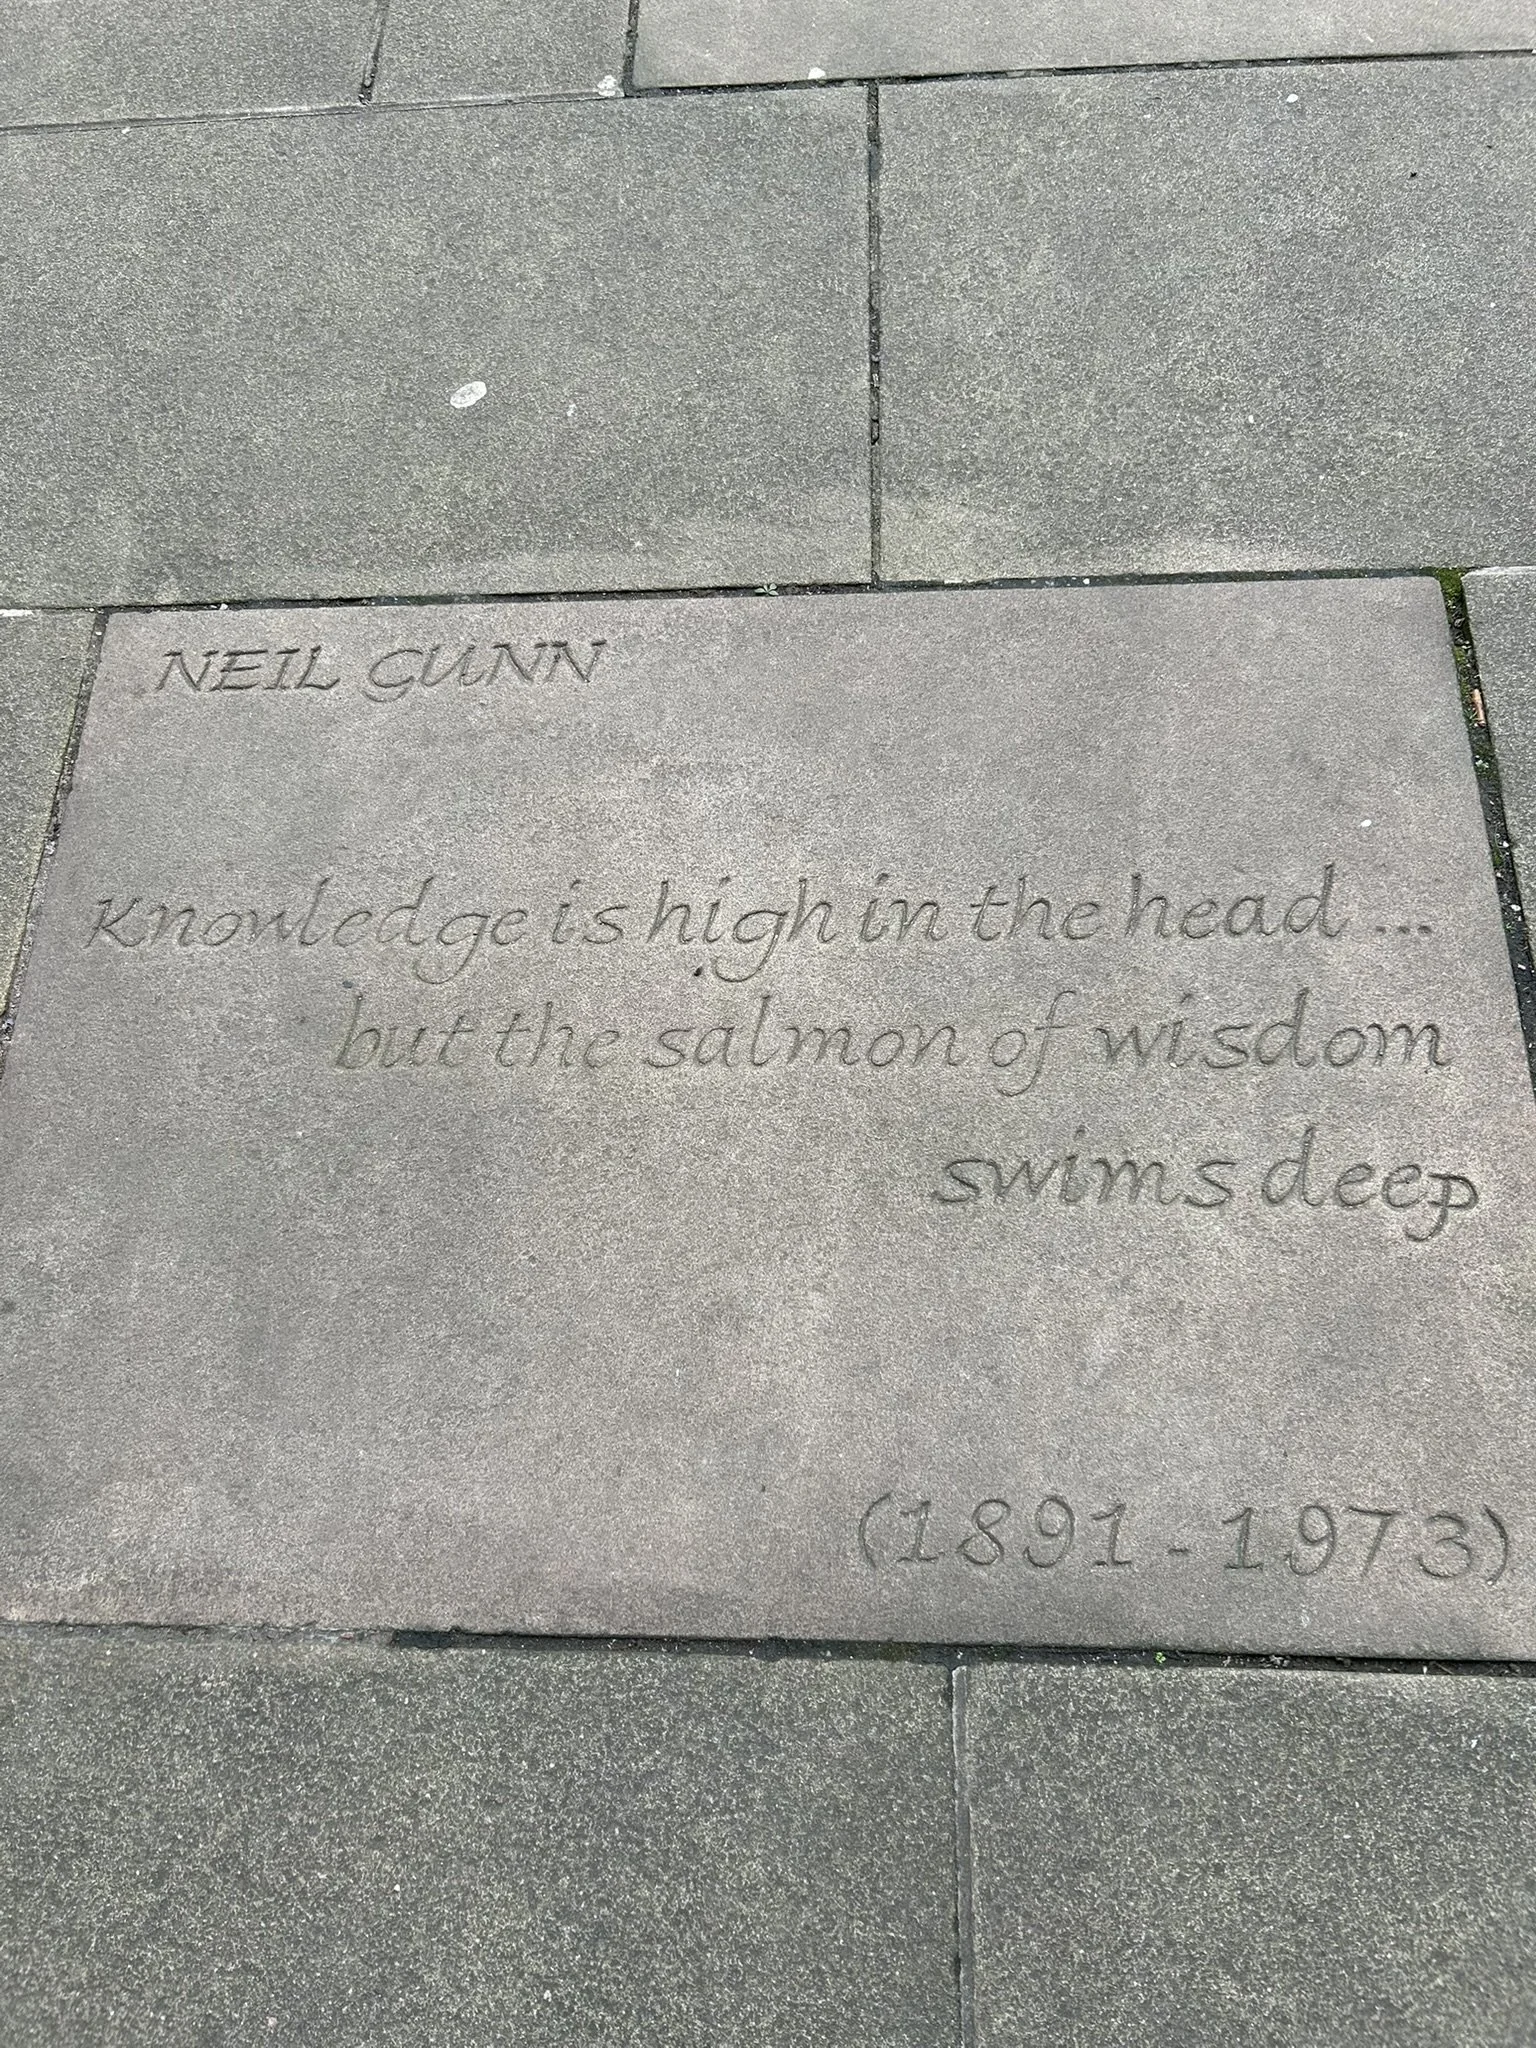 NEIL GUNN
Knowledge is high in the head ...
but the salmon of wisdom
swims deep
(1891 - 1973)